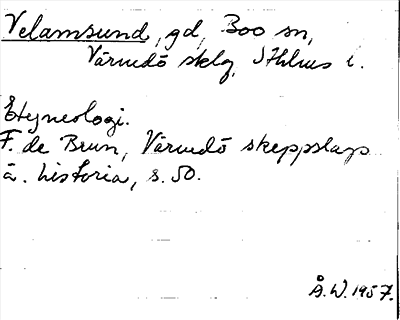 Velamsund, gd, Boo sn,
Värmdö sklg, Sthlms l.
Etymologi.
F. de Brun, Värmdö skeppslags
ä. historia, s. 50.
Å. W. 1957.